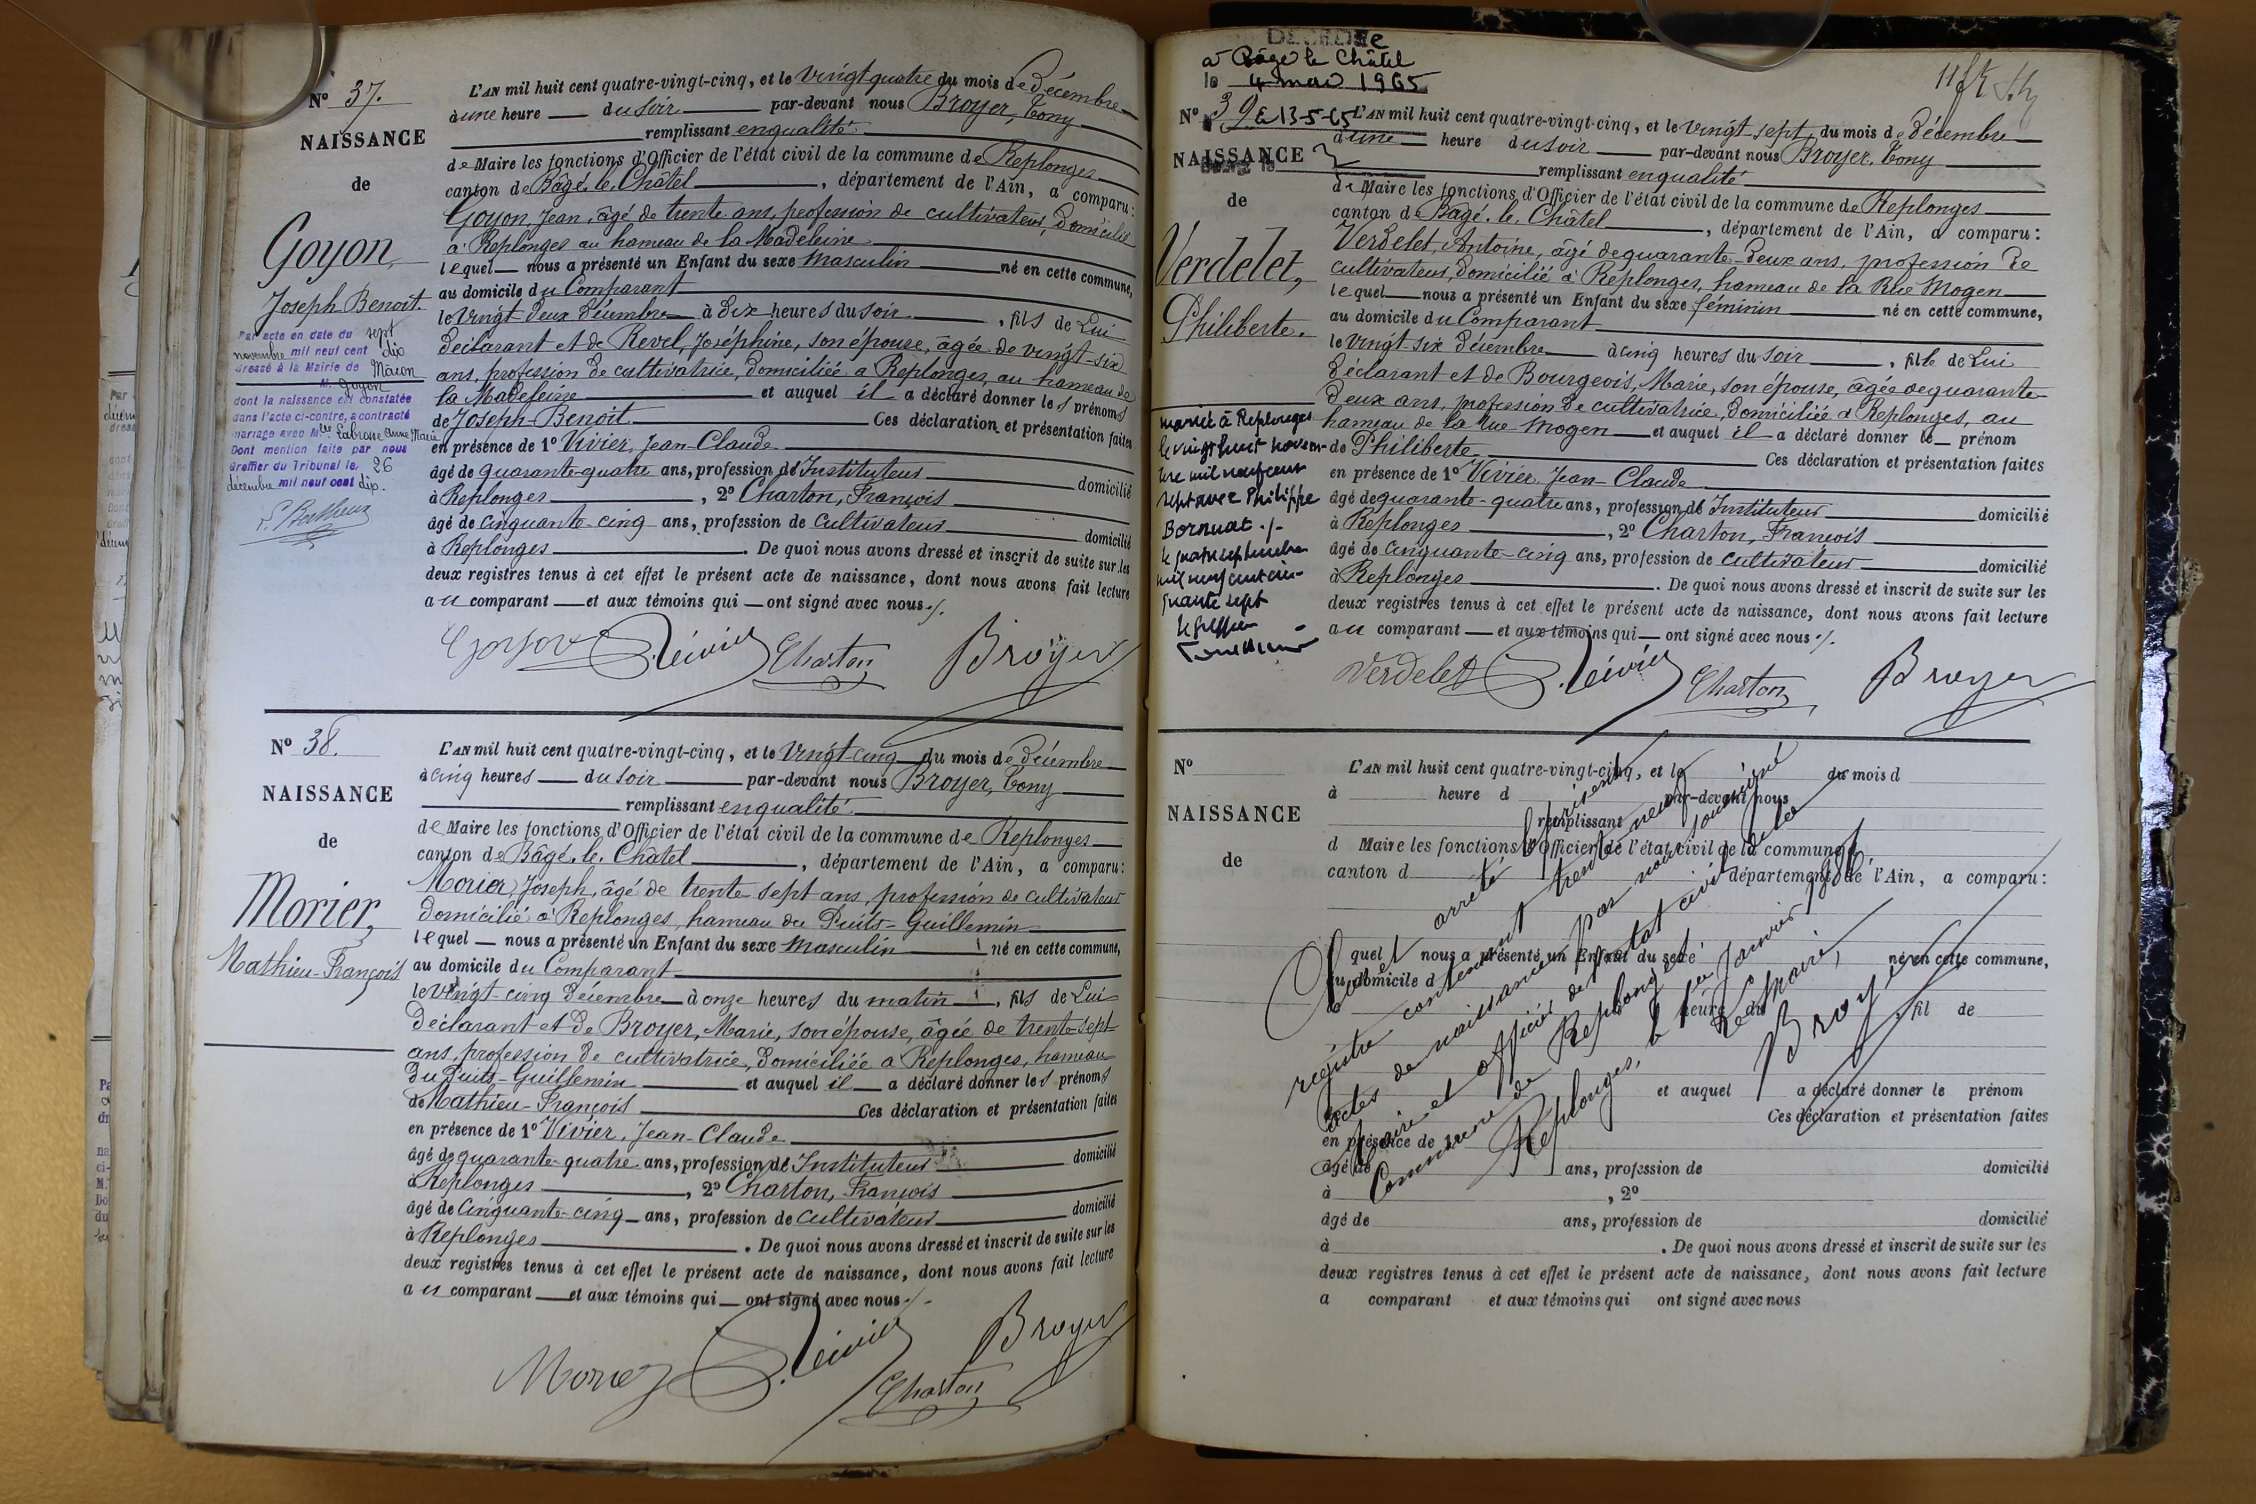 N° 37.
NAISSANCE
de
Goyon,
Joseph Benoit.
Par acte en date du sept
novembre mil neuf cent dix
dressé à la Mairie de Mâcon
M. Goyon
dont la naissance est constatée
dans l'acte ci-contre, a contracté
mariage avec Mlle Labrosse Anne Marie
Dont mention faite par nous
Greffier du Tribunal le 26
décembre mil neuf cent dix.
L'AN mil huit cent quatre-vingt-cinq, et le vingt quatre du mois de Décembre
à une heure du soir par-devant nous Broyer, Tony
remplissant en qualité
de Maire les fonctions d'Officier de l'état civil de la commune de Replonges
canton de Bâgé-le-Châtel, département de l'Ain, a comparu:
Goyon, Jean, âgé de trente ans, profession de cultivateur, domicilié
à Replonges au hameau de la Madeleine
lequel nous a présenté un Enfant du sexe masculin né en cette commune,
au domicile du Comparant
le vingt-deux Décembre à dix heures du soir, fils de Lui
déclarant et de Revel, Joséphine, son épouse, âgée de vingt-six
ans, profession de cultivatrice, domiciliée à Replonges, au hameau de
la Madeleine et auquel il a déclaré donner les prénoms
de Joseph-Benoit Ces déclaration et présentation faites
en présence de 1° Vivier, Jean-Claude
âgé de quarante-quatre ans, profession d'Instituteur domicilié
à Replonges, 2° Charton, François
âgé de cinquante-cinq ans, profession de cultivateur domicilié
à Replonges. De quoi nous avons dressé et inscrit de suite sur les
deux registres tenus à cet effet le présent acte de naissance, dont nous avons fait lecture
au comparant et aux témoins qui ont signé avec nous ./.
Goyon Vivier Charton Broyer
N° 38.
NAISSANCE
de
Morier,
Mathieu-François
L'AN mil huit cent quatre-vingt-cinq, et le vingt-cinq du mois de Décembre
à cinq heures du soir par-devant nous Broyer, Tony
remplissant en qualité
de Maire les fonctions d'Officier de l'état civil de la commune de Replonges
canton de Bâgé-le-Châtel, département de l'Ain, a comparu:
Morier, Joseph, âgé de trente sept ans, profession de cultivateur
domicilié à Replonges, hameau du Puits-Guillemin
lequel nous a présenté un Enfant du sexe masculin né en cette commune,
au domicile du Comparant
le vingt-cinq Décembre à onze heures du matin, fils de Lui
Déclarant et de Broyer, Marie, son épouse, âgée de trente-sept
ans, profession de cultivatrice, domiciliée à Replonges, hameau
du Puits-Guillemin et auquel il a déclaré donner les prénoms
de Mathieu-François Ces déclaration et présentation faites
en présence de 1° Vivier, Jean-Claude
âgé de quarante-quatre ans, profession d'Instituteur domicilié
à Replonges, 2° Charton, François
âgé de Cinquante-cinq ans, profession de cultivateur domicilié
à Replonges. De quoi nous avons dressé et inscrit de suite sur les
deux registres tenus à cet effet le présent acte de naissance, dont nous avons fait lecture
au comparant et aux témoins qui ont signé avec nous ./.
Morier Vivier Charton Broyer
DÉCÉDÉe
à Bâgé le Châtel
le 4 mai 1965
N° 39 Le 13-5-65
NAISSANCE
de
Verdelet,
Philiberte.
mariée à Replonges
le vingt huit novem-
bre mil neuf cent
sept avec Philippe
Bornuat ./.
le quatre septembre
mil neuf cent cin-
quante sept
le greffier
L'AN mil huit cent quatre-vingt-cinq, et le vingt-sept du mois de Décembre
à une heure du soir par-devant nous Broyer, Tony
remplissant en qualité
de Maire les fonctions d'Officier de l'état civil de la commune de Replonges
canton de Bâgé-le-Châtel, département de l'Ain, a comparu:
Verdelet, Antoine, âgé de quarante-deux ans, profession de
cultivateur, domicilié à Replonges, hameau de la Rue Mogen
lequel nous a présenté un Enfant du sexe féminin né en cette commune,
au domicile du Comparant
le vingt-six décembre à cinq heures du soir, fille de Lui
Déclarant et de Bourgeois, Marie, son épouse, âgée de quarante-
deux ans, profession de cultivatrice, domiciliée à Replonges, au
hameau de la rue Mogen et auquel il a déclaré donner le prénom
de Philiberte Ces déclaration et présentation faites
en présence de 1° Vivier, Jean-Claude
âgé de quarante-quatre ans, profession d'Instituteur domicilié
à Replonges, 2° Charton, François
âgé de cinquante-cinq ans, profession de cultivateur domicilié
à Replonges. De quoi nous avons dressé et inscrit de suite sur les
deux registres tenus à cet effet le présent acte de naissance, dont nous avons fait lecture
au comparant et aux témoins qui ont signé avec nous ./.
Verdelet Vivier Charton Broyer
N°
NAISSANCE
de
L'AN mil huit cent quatre-vingt-cinq, et le du mois d
à heure d par-devant nous
remplissant
d Maire les fonctions d'Officier de l'état civil de la commune d
canton d département de l'Ain, a comparu:
quel nous a présenté un Enfant du sexe né en cette commune,
au domicile d
le heure du , fil de
et auquel a déclaré donner le prénom
Ces déclaration et présentation faites
en présence de
âgé de ans, profession de domicilié
à , 2°
âgé de ans, profession de domicilié
à . De quoi nous avons dressé et inscrit de suite sur les
deux registres tenus à cet effet le présent acte de naissance, dont nous avons fait lecture
a comparant et aux témoins qui ont signé avec nous
Clos et arrêté le présent
registre contenant trente neuf
actes de naissance par nous soussigné
Maire et officier de l'état civil de la
Commune de Replonges
Replonges, le 1er Janvier 1886
Le Maire,
Broyer